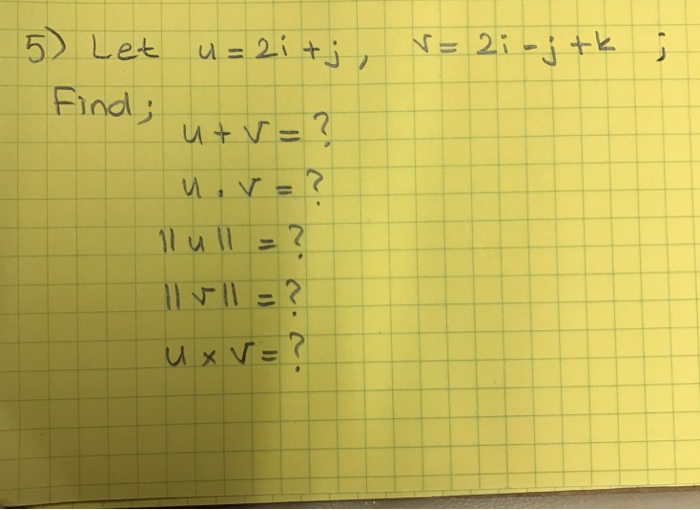 5) Let u = 2i + j, v = 2i - j + k ;
Find;
u + v = ?
u . v = ?
||u|| = ?
||v|| = ?
u × v = ?